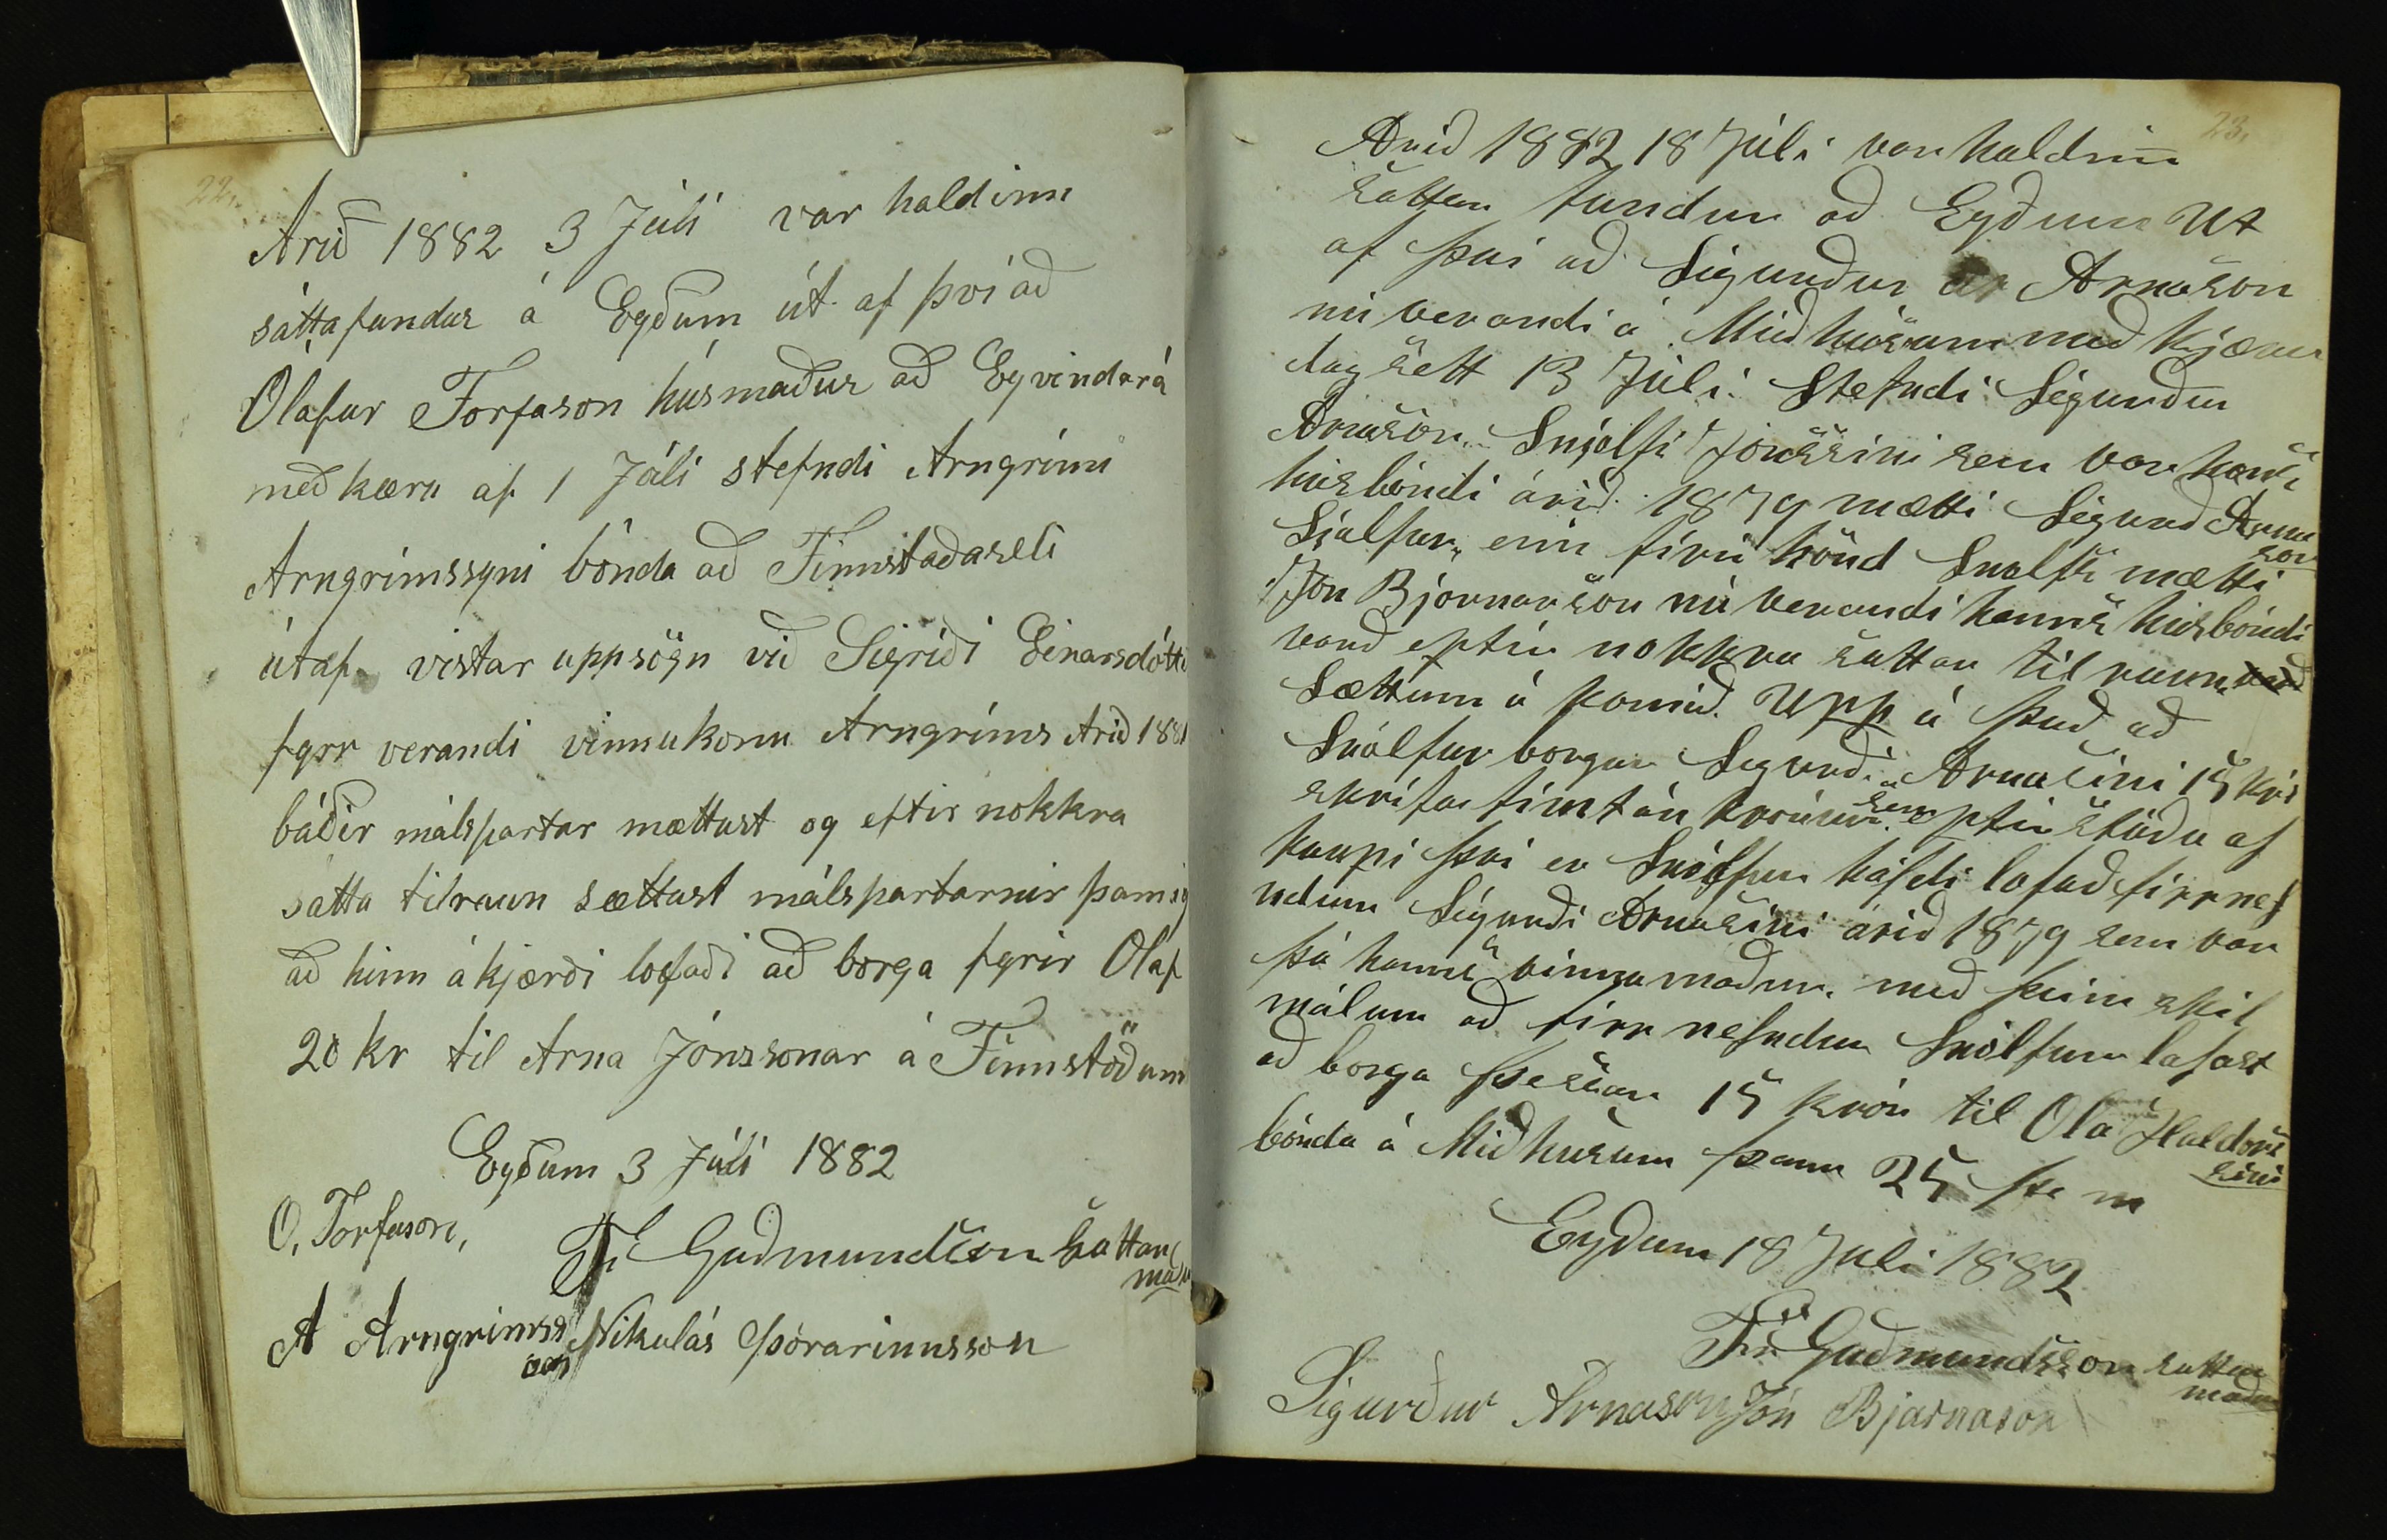 22.
Árið 1882 3 Júlí var haldinn
sáttafundur á Eyðum út af því að
Ólafur Torfason húsmaður að Eyvindará
með kæru af 1 Júlí stefndi Arngrími
Arngrímssyni bónda að Finnstaðaseli
útaf vistar uppsögn við Sigríði Einarsdótti
fyrr verandi vinnukonu Arngríms Árið 1881
báðir málspartar mættust og eftir nokkra
sátta tilraun sættust málspartarnir þannig
að hinn ákjærði lofaði að borga fyrir Ólaf
20 kr til Arna Jónssonar á Finnstöðum
Eyðum 3 Júlí 1882
O. Torfason,
Guðmundson Sattan
maðu
A Arngrimss
son
Nikulás Þórarinnsson
23.
Arið 1882 18 Júli var haldinn
sattan fundur að Eyðum Ut
af því að Sigurður Arnason
nú verandi á Miðhúsum með kjæru
dagsett 13 Júli. Stefndi Sigurður
Arnason Snjólfi Jónssini sem var hans
húsbóndi árið 1879 mætti Sigurð Arna
son
Sjálfur, enn firir hönd Snolfs mætti
Jón Bjarnarson nú verandi hanns húsbóndi
varð eptir nokkra sattar tilraun
Sættinn á komið. Upp á það að
Snólfur borgar Sigurði Arnasini 15 kr
skrifa fimtán krónur sem eptir stóðu af
kaupi því er Snólfur hafði lofað firrnef
ndum Sigurði Arnasini árið 1879 sem var
þá hanns vinnumaður. með þeim skil
málum að firr nefndur Snólfur lofast
að borga þessar 15 krón til Ola Haldórs
sini
bónda á Miðhúsum þann 25 þ m
Eyðum 18 Juli 1882
Guðmundsson sattan
maður
Sigurður Árnason Jón Bjarnason